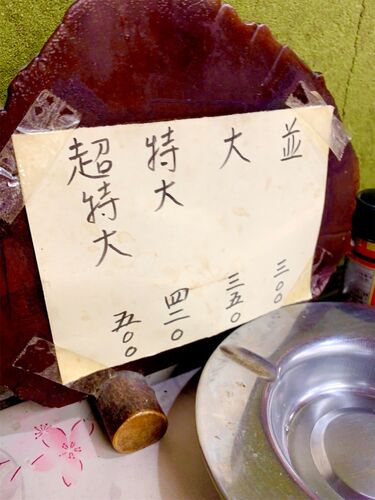 並 三〇〇
大 三五〇
特大 四二〇
超特大 五〇〇